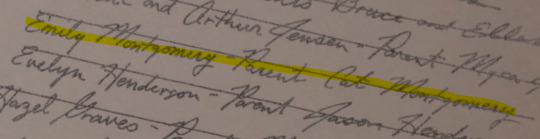 and Arthur Jensen - Parent
Bruce and
Emily Montgomery - Parent Cat Montgomery
Evelyn Henderson - Parent Jason
Hazel Graves -